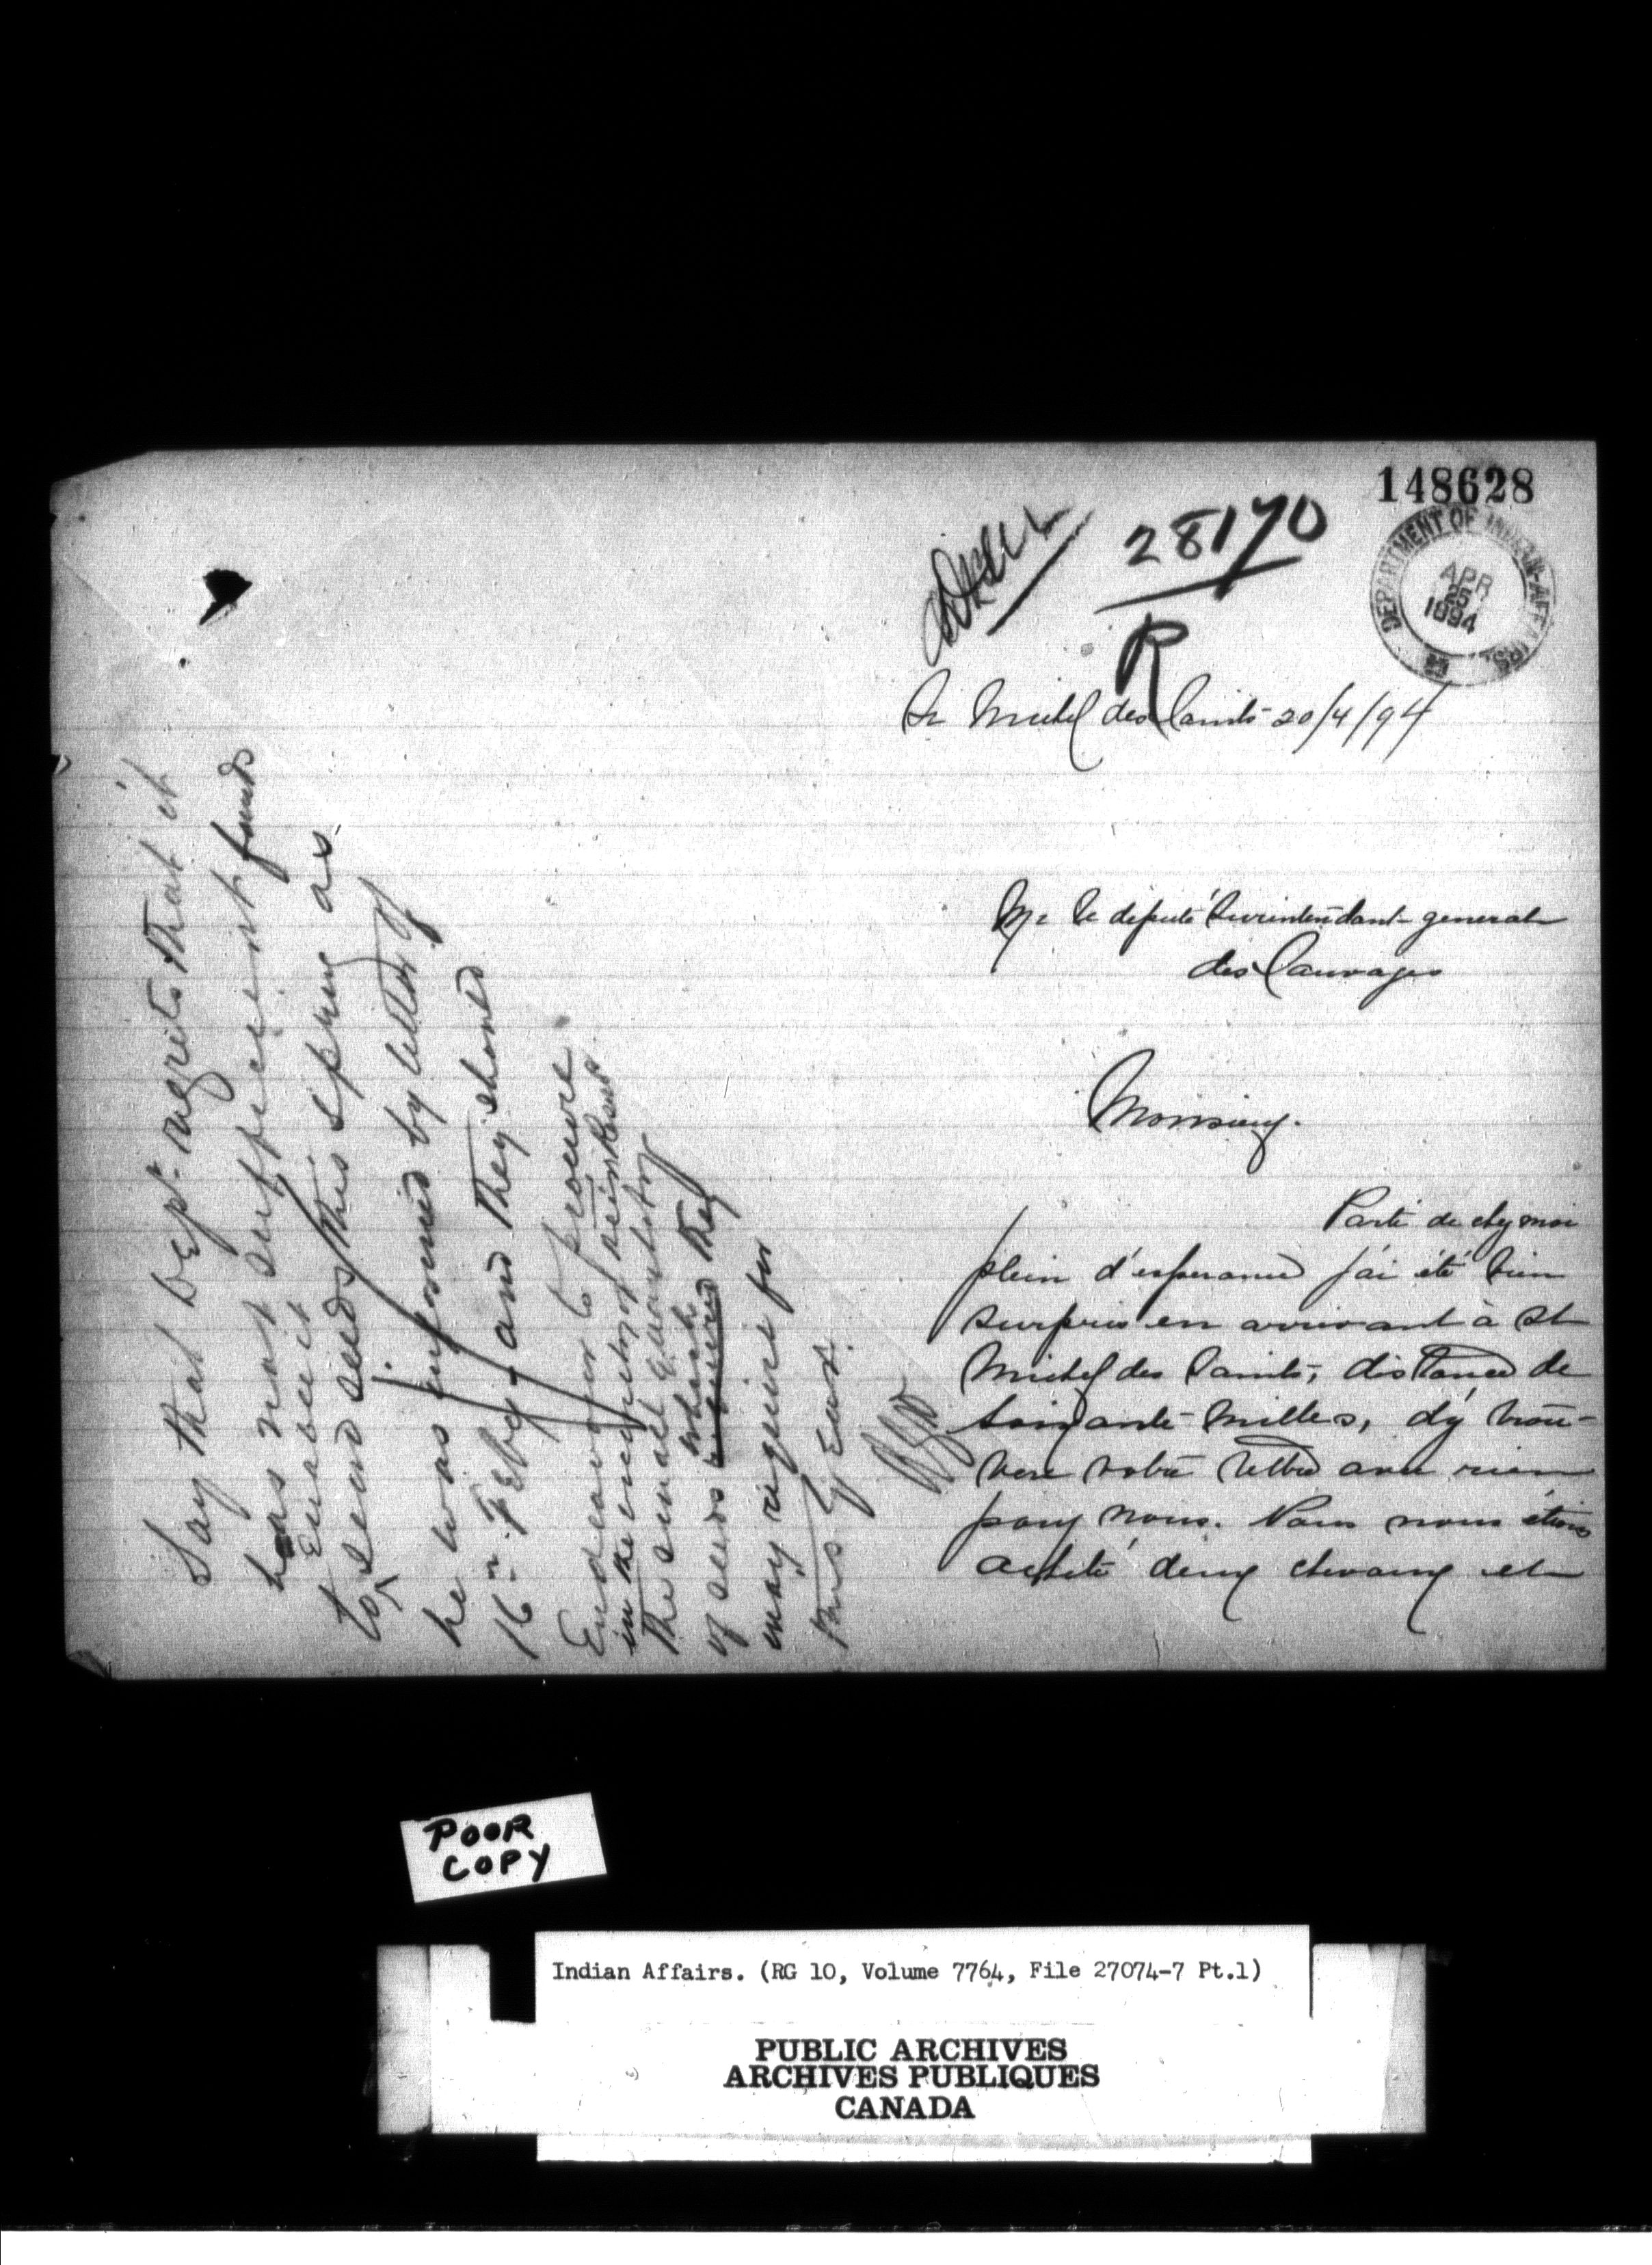 148628
28170
R
DEPARTMENT OF INDIAN AFFAIRS.
APR
25
1894
St Michel des Saints 20/4/94
Mr le deputé Surintendant general
des Sauvages
Monsieur.
Parti de chy moi
plein d'esperance j'ai été bien
surpris en arrivant à St
Michel des Saints, distance de
soixante milles, d'y trou-
vere votre lettre avec rien
pour nous. Nous nous étions
acheté deux chevaux et
Say that Dept. regrets that it
has not sufficient funds
to Enable it
send seeds this spring as
he was informed by letter of
16th Feby. and they should
Endeavour to procure
in the vicinity of
the small quantity
of seeds which they
may require for
this year.
POOR
COPY
Indian Affairs. (RG 10, Volume 7764, File 27074-7 Pt.1)
PUBLIC ARCHIVES
ARCHIVES PUBLIQUES
CANADA